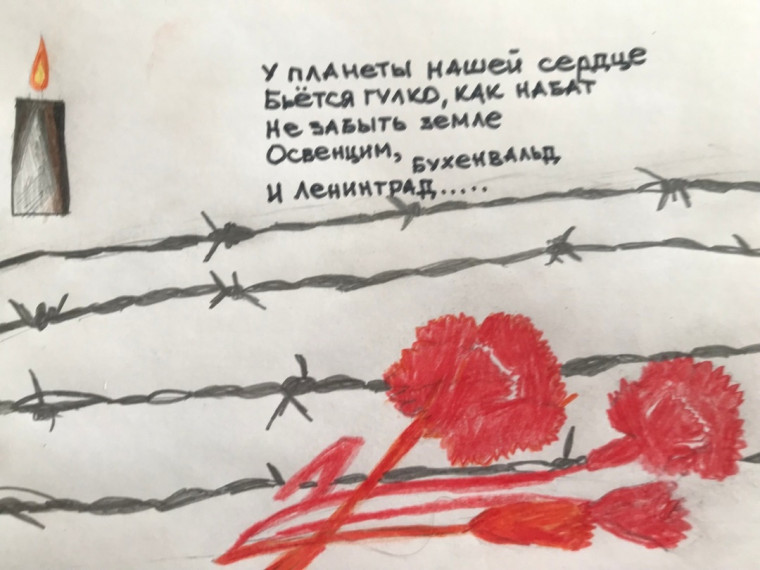 У планеты нашей сердце
Бьётся гулко, как набат
Не забыть земле
Освенцим, Бухенвальд
и Ленинград.....